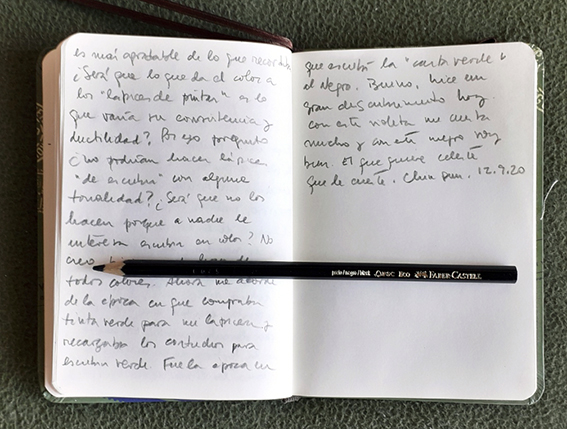 es más agradable de lo que recordaba
¿Será que lo que da el color a
los "lápices de pintar" es lo
que varía su consistencia y
ductilidad? Por eso pregunto
¿no podrían hacer lápices
"de escribir" con alguna
tonalidad? ¿Será que no los
hacen porque a nadie le
interesa escribir en color? No
creo
todos colores. Ahora me acordé
de la época en que compraba
tinta verde para mi lapicera y
recargaba los cartuchos para
escribir verde. Fue la época en
que escribí la "carta verde" a
el Negro. Bueno, hice un
gran descubrimiento hoy.
con este violeta me cuesta
mucho y con este negro voy
bien. El que quiere celeste
que le cueste. Chin pun. 12.9.20
preto/negro/black EcoLápiz FABER-CASTELL